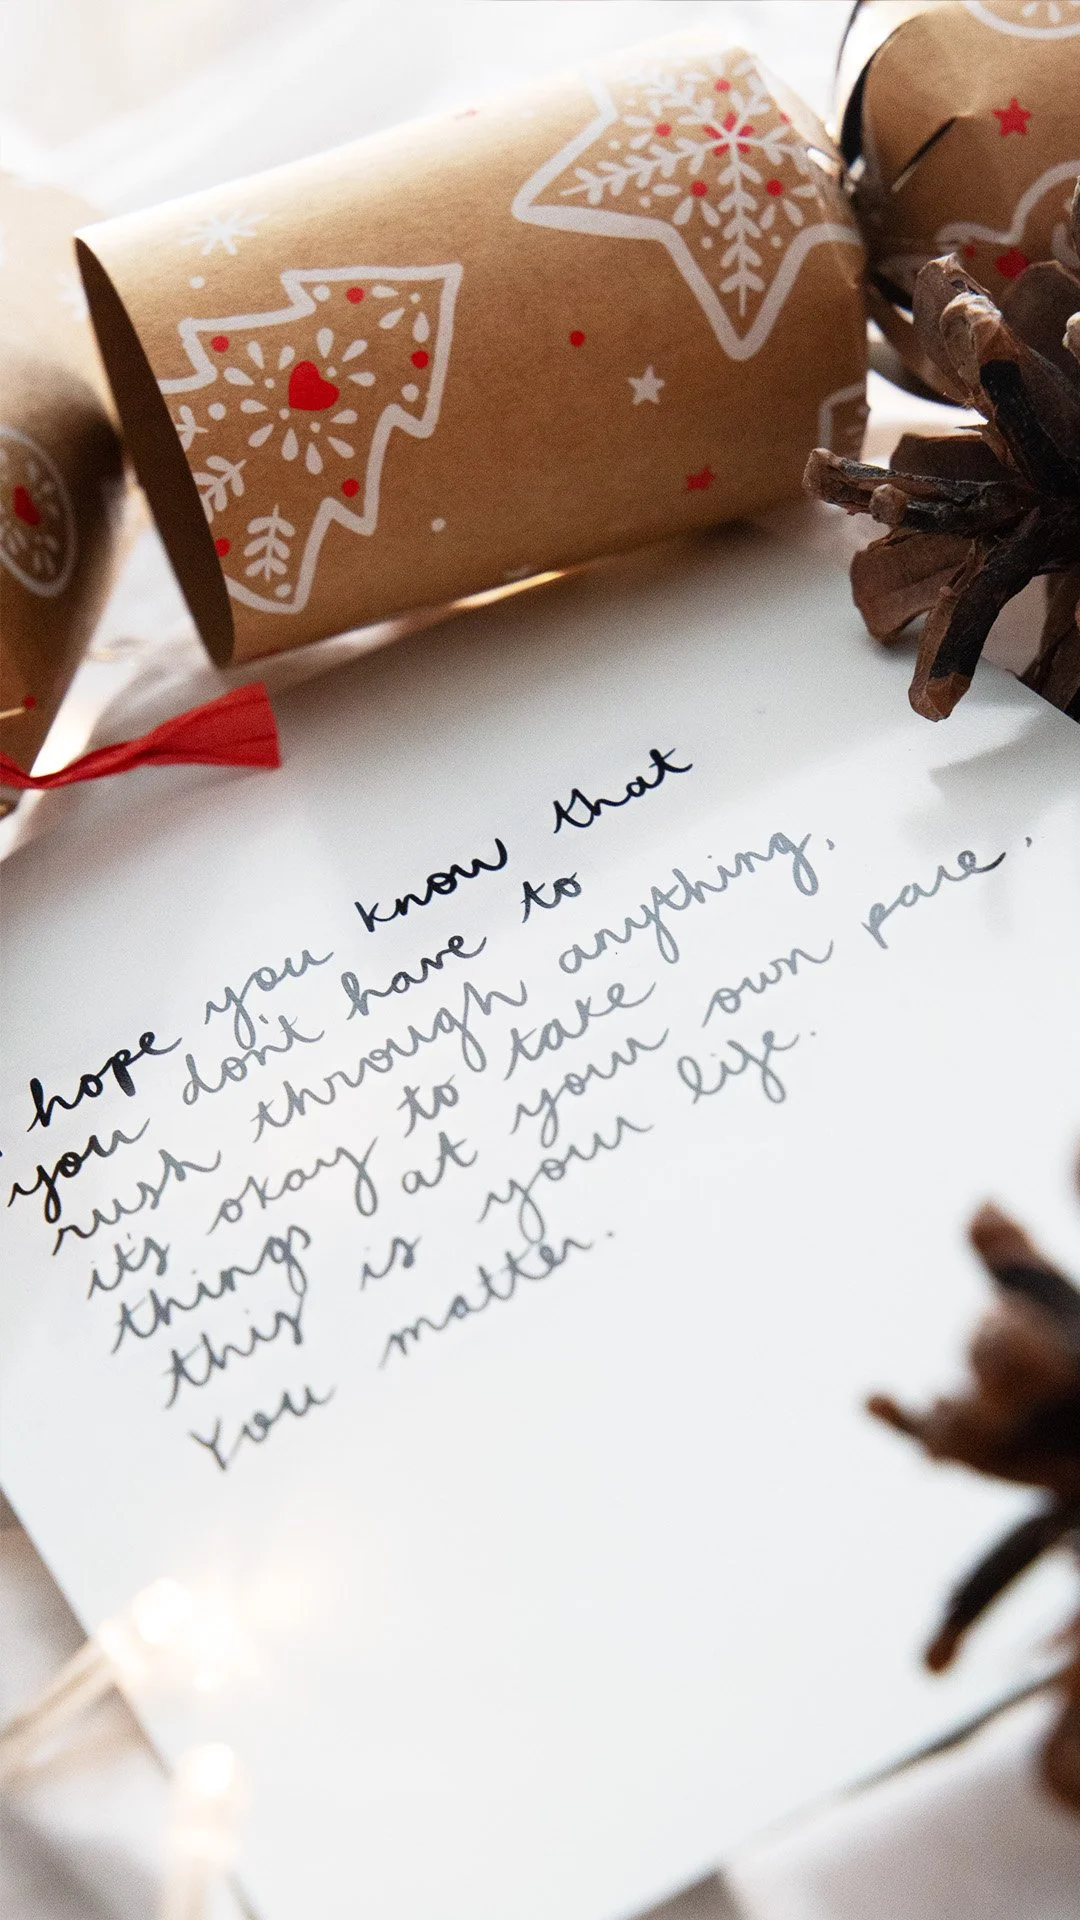 hope you know that
you don't have to
rush through anything,
it's okay to take
things at your own pace,
this is your life.
You matter.